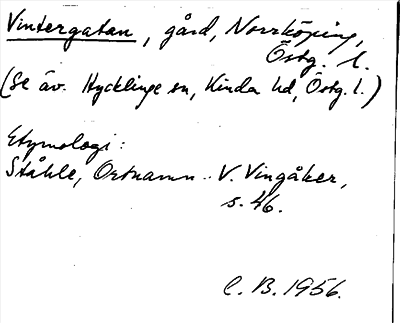 Vintergatan, gård, Norrköping,
Östg. l.
(Se äv. Hycklinge sn, Kinda hd, Östg. l.)
Etymologi:
Ståhle, Ortnamn.. V. Vingåker,
s. 46.
C. B. 1956.